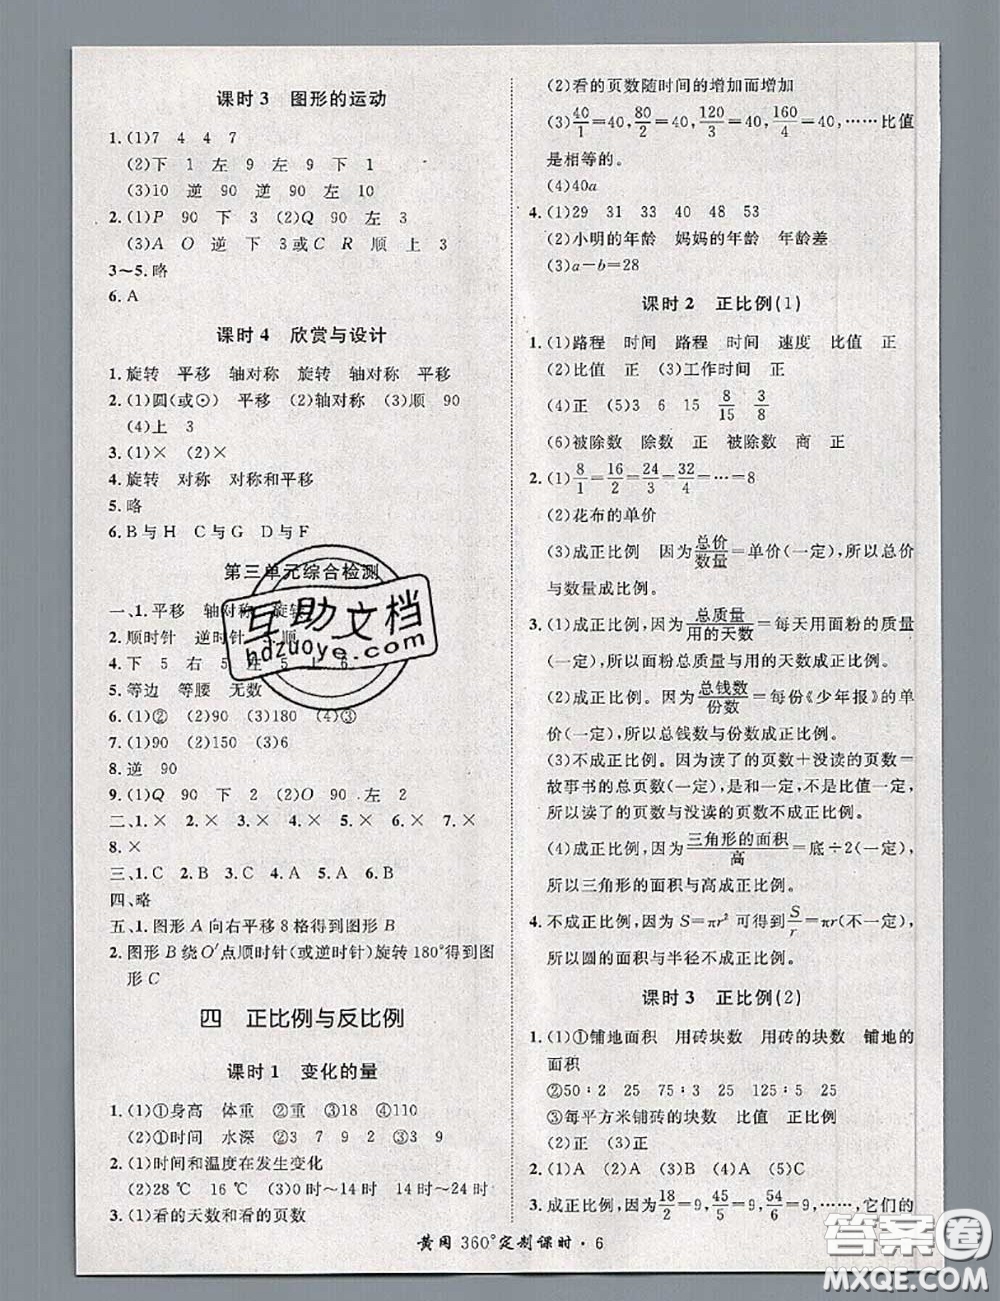 课时3 图形的运动
1.(1)7 4 4 7
(2)下 1 左 9 左 9 下 1
(3)10 逆 90 逆 90 左 10
2.(1)P 90 下 3 (2)Q 90 左 3
(3)A O 逆 下 3或C R 顺 上 3
3~5.略
6.A
课时4 欣赏与设计
1.旋转 平移 轴对称 旋转 轴对称 平移
2.(1)圆(或⊙) 平移 (2)轴对称 (3)顺 90
(4)上 3
3.(1)× (2)×
4.旋转 对称 对称和平移
5.略
6.B与H C与G D与F
第三单元综合检测
一、1.平移 轴对称 旋转
2.顺时针 逆时针 3.顺
4.下 5 右 5 左 5 上 6
5.等边 等腰 无数
6.(1)② (2)90 (3)180 (4)③
7.(1)90 (2)150 (3)60
8.逆 90
9.(1)Q 90 下 2 (2)O 90 左 2
二、1.× 2.× 3.× 4.× 5.× 6.× 7.×
8.×
三、1.C 2.B 3.C 4.A 5.A 6.B
四、略
五、1.图形A向右平移8格得到图形B
2.图形B绕O′点顺时针(或逆时针)旋转180°得到图
形C
四 正比例与反比例
课时1 变化的量
1.(1)①身高 体重 ②重 ③18 ④110
(2)①时间 水深 ②3 7 9 2 ③3 9
2.(1)时间和温度在发生变化
(2)28 ℃ 16 ℃ (3)0时~14时 14时~24时
3.(1)看的天数和看的页数
(2)看的页数随时间的增加而增加
(3)40/1=40,80/2=40,120/3=40,160/4=40,……比值
是相等的。
(4)40a
4.(1)29 31 33 38 43 48 53
(2)小明的年龄 妈妈的年龄 年龄差
(3)a-b=28
课时2 正比例(1)
1.(1)路程 时间 路程 时间 速度 比值 正
(2)比值 正 (3)工作时间 正
(4)正 (5)3 6 15 8/15 3/8
(6)被除数 除数 正 被除数 商 正
2.(1)8/1=16/2=24/3=32/4=…=8
(2)花布的单价
(3)成正比例 因为总价/数量=单价(一定),所以总价
与数量成正比例。
3.(1)成正比例。因为总质量/用的天数=每天用面粉的质量
(一定),所以面粉总质量与用的天数成正比例。
(2)成正比例。因为总钱数/份数=每份《少年报》的单
价(一定),所以总钱数与份数成正比例。
(3)不成正比例。因为读了的页数+没读的页数=
故事书的总页数(一定),是和一定,不是比值一定,
所以读了的页数与没读的页数不成正比例。
(4)成正比例。因为三角形的面积/高=底÷2(一定),
所以三角形的面积与高成正比例。
4.不成正比例,因为S=πr²可得到S/r=πr(不一定),
所以圆的面积与半径不成正比例。
课时3 正比例(2)
1.(1)①铺地面积 用砖块数 用砖的块数 铺地的
面积
②50∶2 25 75∶3 25 125∶5 25
③每平方米铺砖的块数 比值 正比例
(2)正 (3)正
2.(1)A (2)C (3)B (4)A (5)C
3.成正比例,因为18/2=9,45/5=9,54/6=9,……,它们的
黄冈360°定制课时·6
互助文档
hdzuoye.com
答案圈
MXQE.COM